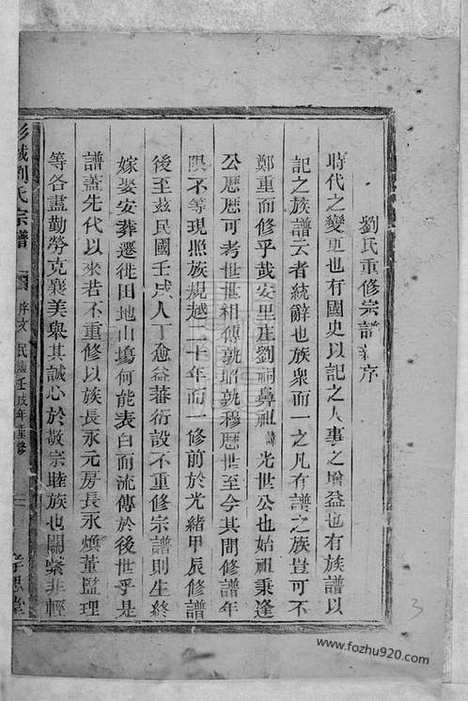 劉氏重修宗譜新序
時代之變更也有國史以記之人事之增益也有族譜以
記之族譜云者統辭也族衆而一之凡有譜之族豈可不
鄭重而修乎哉安里庄劉嗣鼻祖諱光世公也始祖秉逢
公歷歷可考世世相傳孰昭孰穆歷世至今其間修譜年
限不等現照族規越二十年而一修前於光緒甲辰修譜
後至茲民國壬戌人丁愈益蕃衍設不重修宗譜則生終
嫁娶安葬遷徙田地山塲何能表白而流傳於後世乎是
譜蓋先代以來若不重修以族長永元房長永煥董監理
等各盡勤勞克襄美舉其誠心於敬宗睦族也關繫非輕
彭城劉氏宗譜
序文
民國壬戌年重修
孝思堂
3
www.fozhu920.com